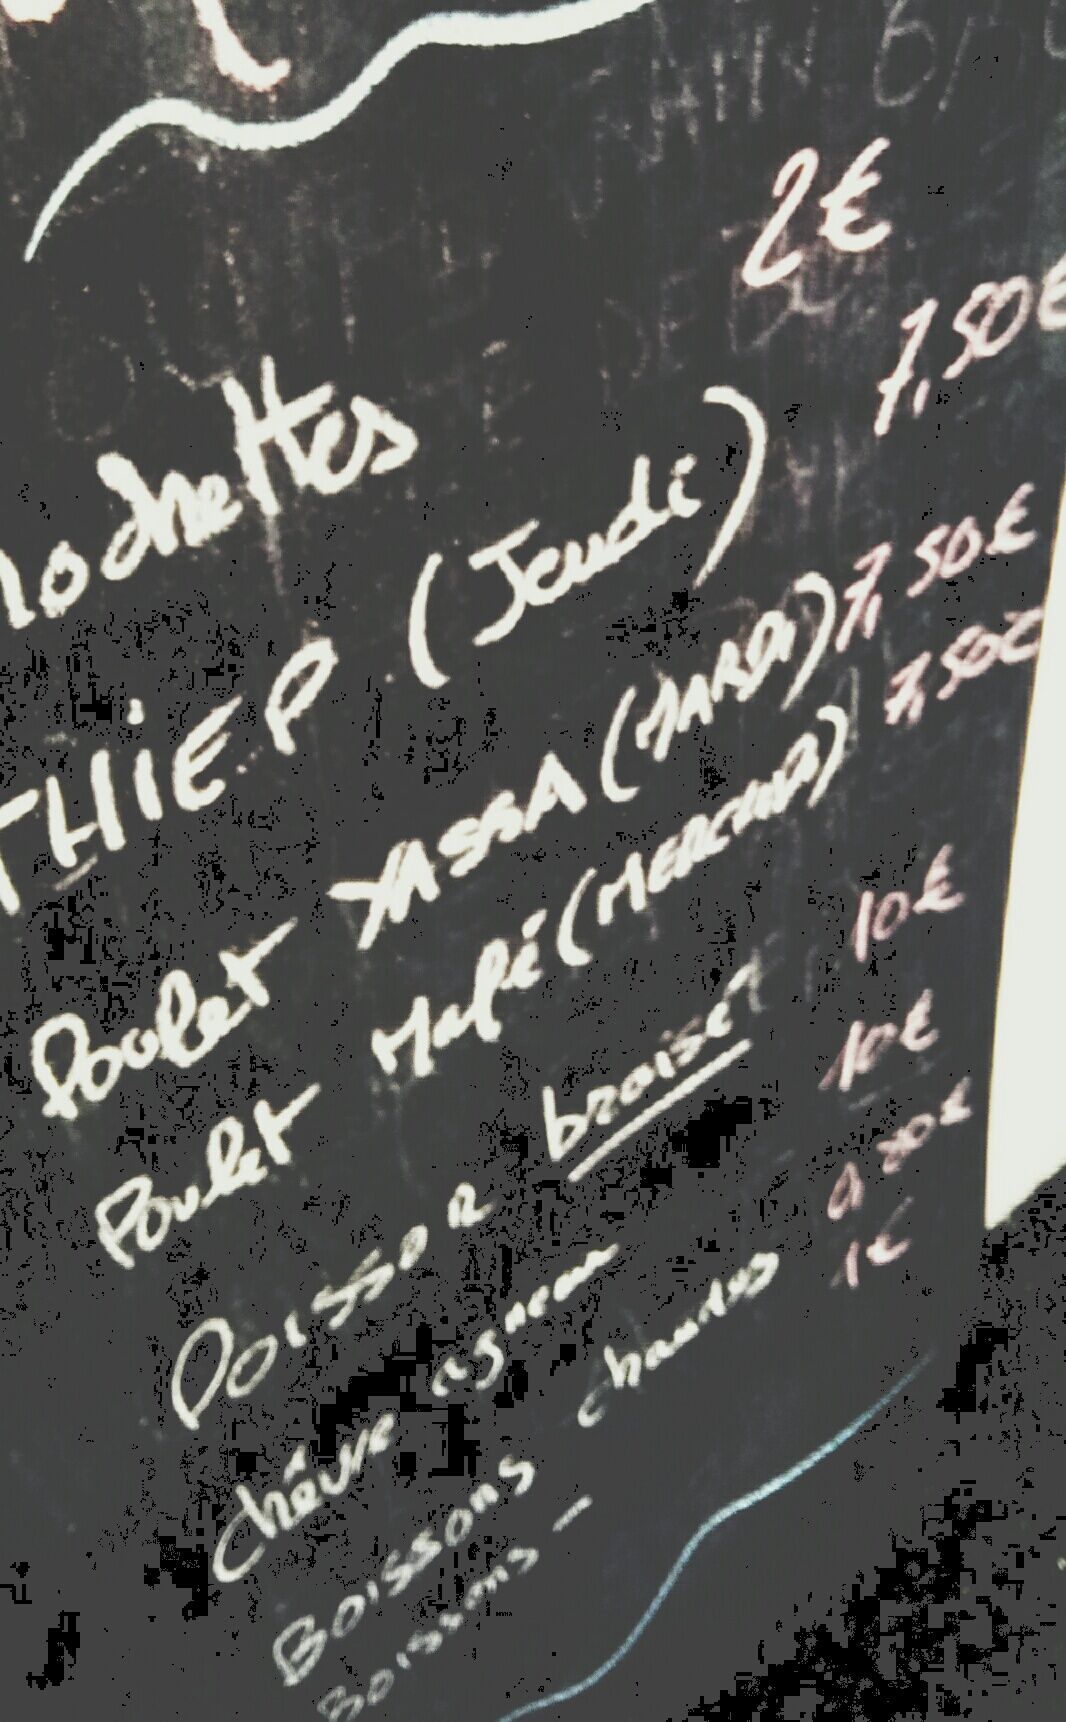 2€
THIEP (Jeudi) 7,50€
Poulet YASSA (MARDI) 7,50€
Poulet Mafé (MERCREDI) 7,50€
Poisson braiser 10€
Chèvre agneau 10€
Boissons chaudes
Boissons - 1€